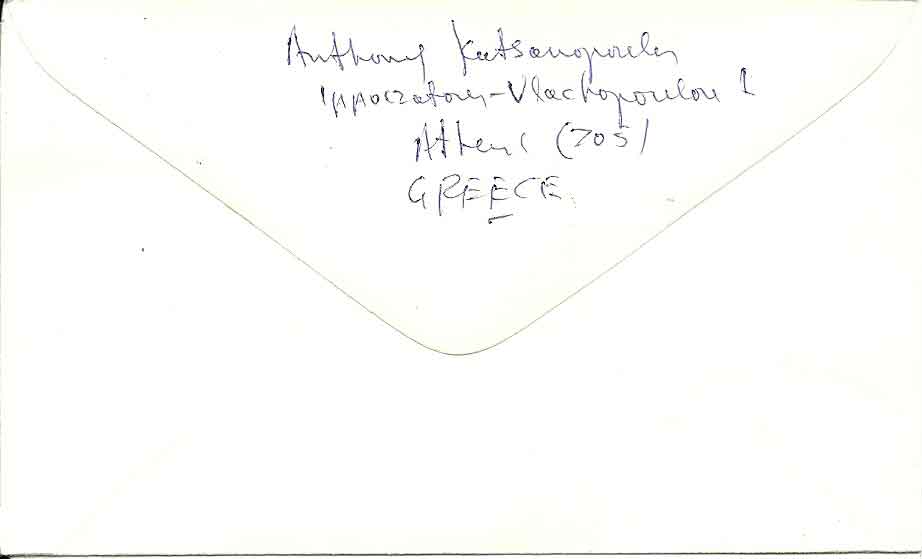 Anthony Katsanopoulos
Ippocratous-Vlachopoulou 1
Athens (705)
GREECE